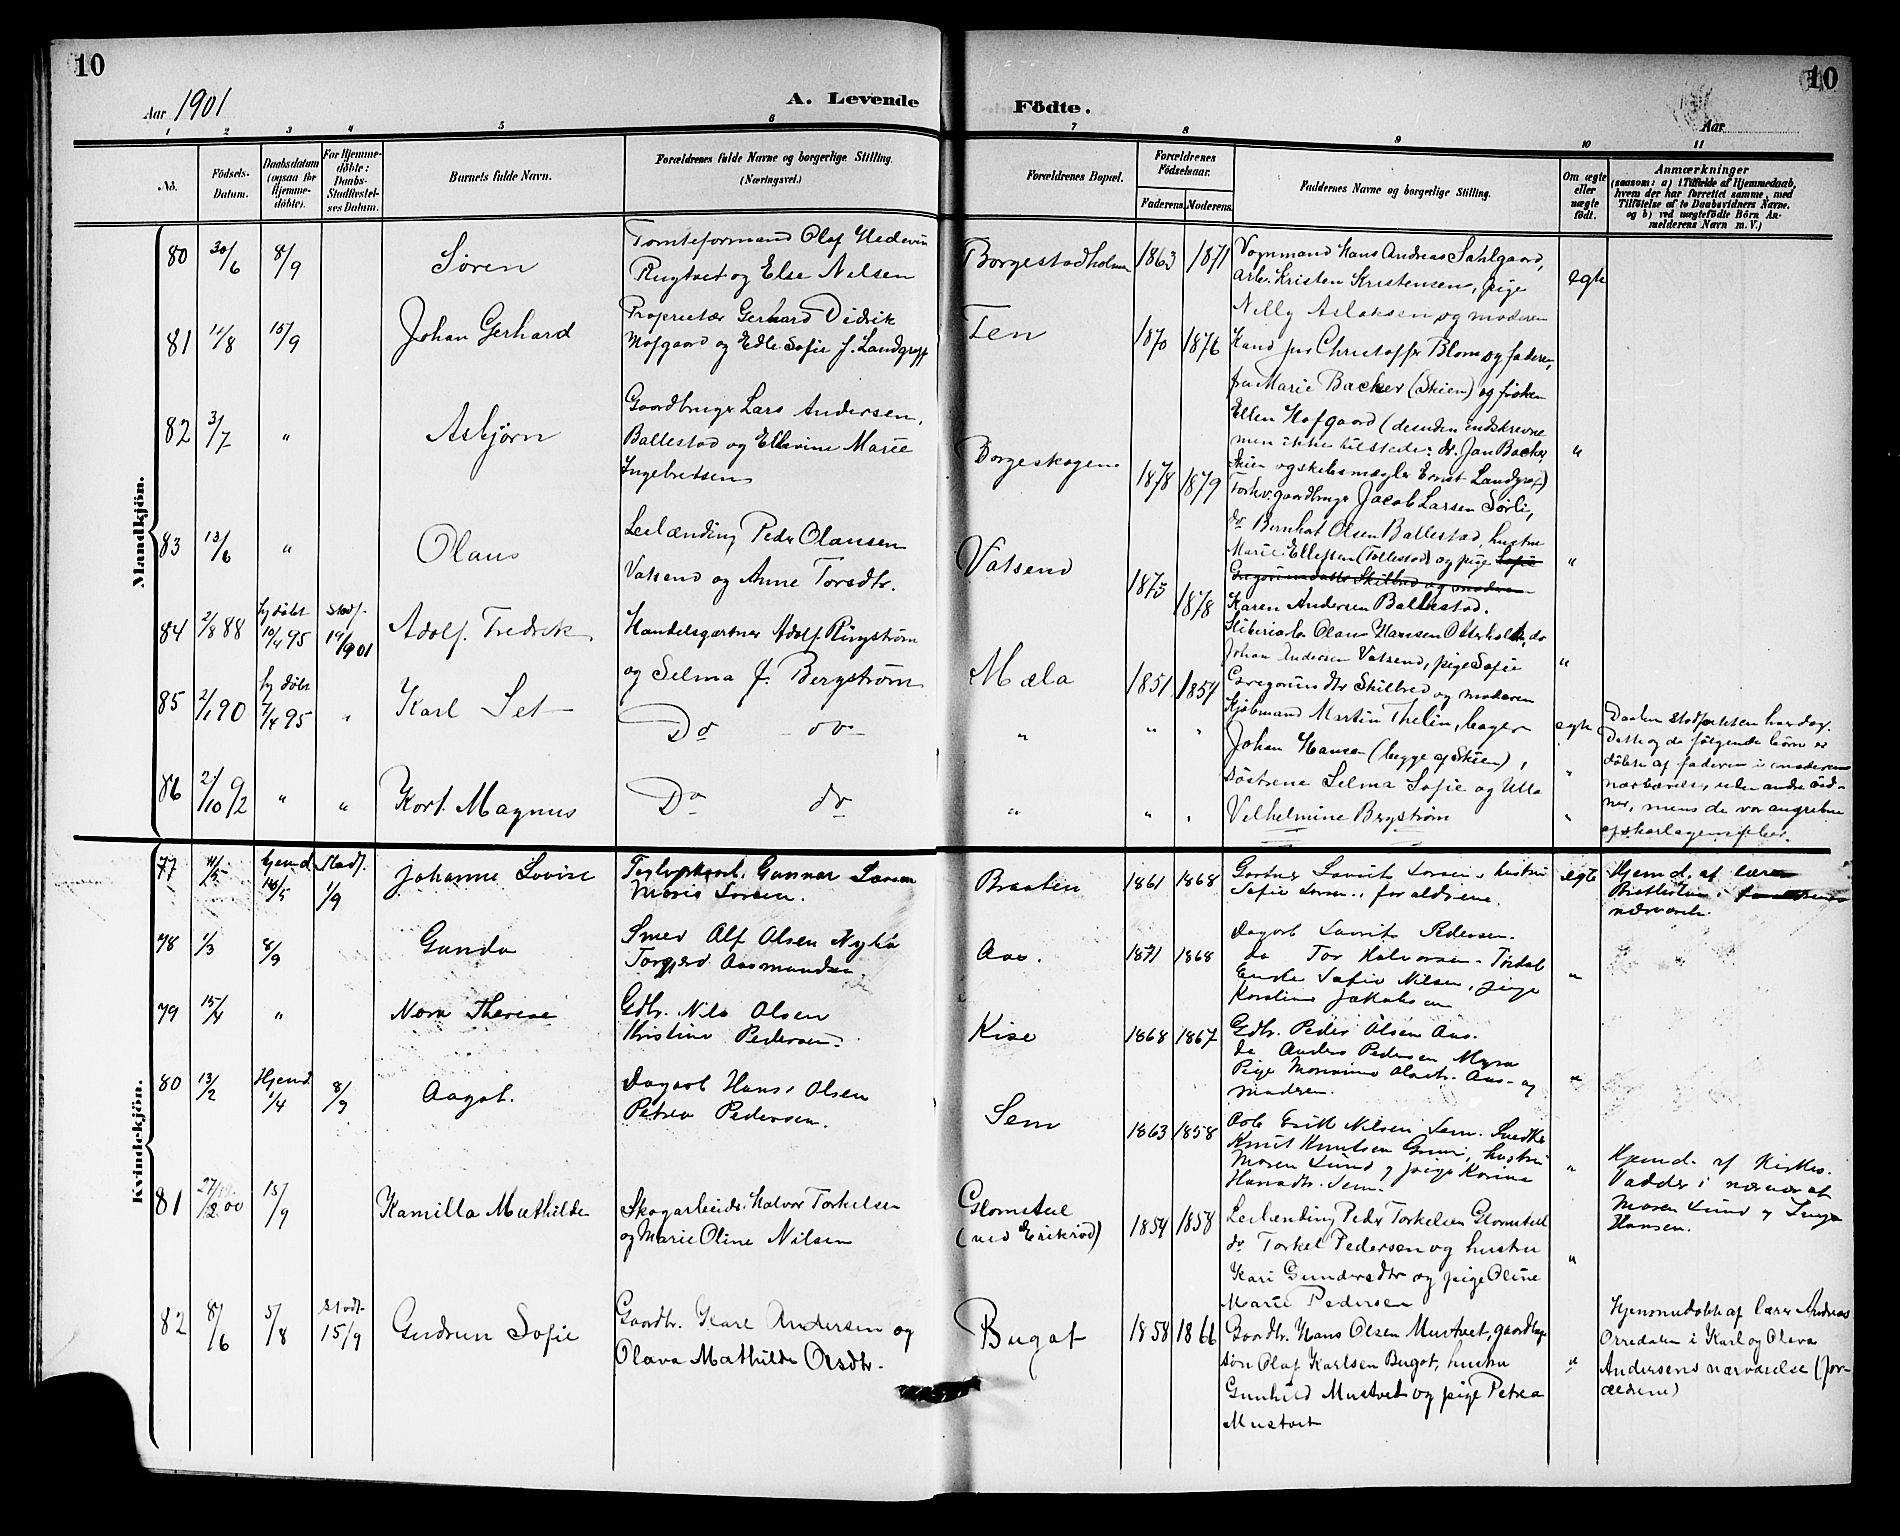 10
10
Aar 1901
A. Levende
Födte.
Aar
1 2 3 4 5 6 7 8 9 10 11
No.
Födsels-
Datum.
Daabsdatum
(ogsaa for
Hjemme-
döbte).
For Hjemme-
döbte:
Daabs-
Stadfæstel-
ses Datum.
Barnets fulde Navn.
Forældrenes fulde Navne og borgerlige Stilling.
(Næringsvei.)
Forældrenes Bopæl.
Forældrenes
Födselsaar.
Faderens. Moderens.
Faddernes Navne og borgerlige Stilling.
Om ægte
eller
uægte
födt.
Anmærkninger
(saasom: a) i Tilfælde af Hjemmedaab,
hvem der har forrettet samme, med
Tilföielse af to Daabsvidners Navne.
og b) ved uægtefödte Börn An-
melderens Navn m. V.)
Mandkjön.
80 30/6 8/9 Søren
Tomteformand Olaf
Rugtvet og Else Nilsen
Borgestadholmen 1863 1871
Vognmand Hans Andreas Sahlgaard,
arb. Kristen Kristensen, pige
Nelly Aslaksen og moderen
egte
81 11/8 15/9 Johan Gerhard
Proprietær Gerhard Didrik
Hofgaard og Edle Sofie f. Landgraff
Fen 1870 1876
Kand. jur Christoffer Blom og faderen,
fru Marie Backer (Skien) og frøken
Ellen Hofgaard (desuden indskrevne
men ikke tilstede: dr. Jan Backer,
Skien og skibsmægler Ernst Landgraf)
"
82 3/7 " Asbjørn
Gaardbruger Lars Andersen,
Ballestad og Ellevine Marie
Ingebretsen
Borgeskogen 1878 1879
Forhv. gaardbruger Jacob Larsen Sørli,
do Bernhat Olsen Ballestad, hustru
Marie Ellefsen (Tollestad) og pige Sofie
Gregoriusdatter Skilbred og moderen
Karen Andersen Ballestad.
"
83 13/6 " Olaus
Leilænding Peder Olausen
Vatsend og Anne Torsdtr.
Vatsend 1873 1878
Olaus Hansen Otterholt, do
Johan Andersen Vatsend, pige Sofie
Gregoriusdtr Skilbred og moderen
"
84 2/8 88 hj. døbt 10/4 95 Stadf. 19/9 01 Adolf Fredrik
Handelsgartner Adolf Ringstrøm
og Selma f. Bergstrøm
Mæla 1851 1854
Kjøbmand Martin Thelin, bager
Johan Hansen (begge af Skien),
Søstrene Selma Sofie og Ulla
Vilhelmine Bergstrøm
egte
Daaben stadfæstes hver dag.
Dette og de følgende børn er
døbte af faderen i moderens
nærværelse, uden andre vid-
ner, mens de var angrebne
af skarlagensfeber.
85 2/1 90 hj. døbt 7/4 95 " Karl Set
Do do
" " " "
86 2/10 92 " " Kort Magnus
Do do
" " " "
Kvindekjön.
77 11/5 hjemd. 16/5 Stadf. 1/9 Johanne Lovise
Teglverksarb. Gunnar Larsen
Maria Larsen.
Braaten 1861 1868
Gartner Lavrits Larsen, hustru
Sofie Larsen, foraldrene.
egte
Hjemd. af lærer
nærværelse.
78 1/3 8/9 Gunda
Smed Alf Olsen Nyhus
Torgjerd Aasmundsen.
Aas. 1871 1868
Dagarb Lavrits Pedersen.
do Tor Halvorsen Tørdal
Enke Sofie Nilsen, pige
Karoline Jakobsen
"
79 15/4 " Nora Therese
Gdbr. Nils Olsen
Kristine Pedersen.
Kise 1868 1867
Gdbr. Peder Olsen Aas.
do Anders Pedersen Myra
Pige Olsen Aas og
Moderen.
"
80 13/2 Hjemd. 1/4 8/9 Aagot.
Dagarb Hans Olsen
Petrea Pedersen.
Sem 1863 1858
Arb Erik Nilsen Sem. Snedker
Knut Knutsen Gruvi, hustru
Maren Lund, pige Karine
Hansdtr. Sem.
"
Hjemd. af Kirkes.
Vadder i nærvær af
Maren Lund og Inga
Hansen.
81 27/2 00 15/9 Kamilla Mathilde
Skogarbeider Halvor Torkelsen
og Marie Oline Nilsen
Glomstul
(ved Eriksrød) 1854 1858
Leilænding Peder Torkelsen Glomstul
do Torkel Pedersen og hustru
Kari Gundersdtr og pige Oline
Marie Pedersen
"
82 8/6 5/8 Stadf. 15/9 Gudrun Sofie
Gaardbr. Karl Andersen og
Olava Mathilde Olsdtr.
Bugot 1858 1866
Gaardbr. Hans Olsen Mustvet, gaardbruger-
søn Olaf Karlsen Bugot, hustru
Gunhild Mustvet og pige Petrea
Mustvet
"
Hjemmedøbt af lærer Andreas
Orredalen i Karl og Olava
Andersens nærværelse (for-
ældrene)